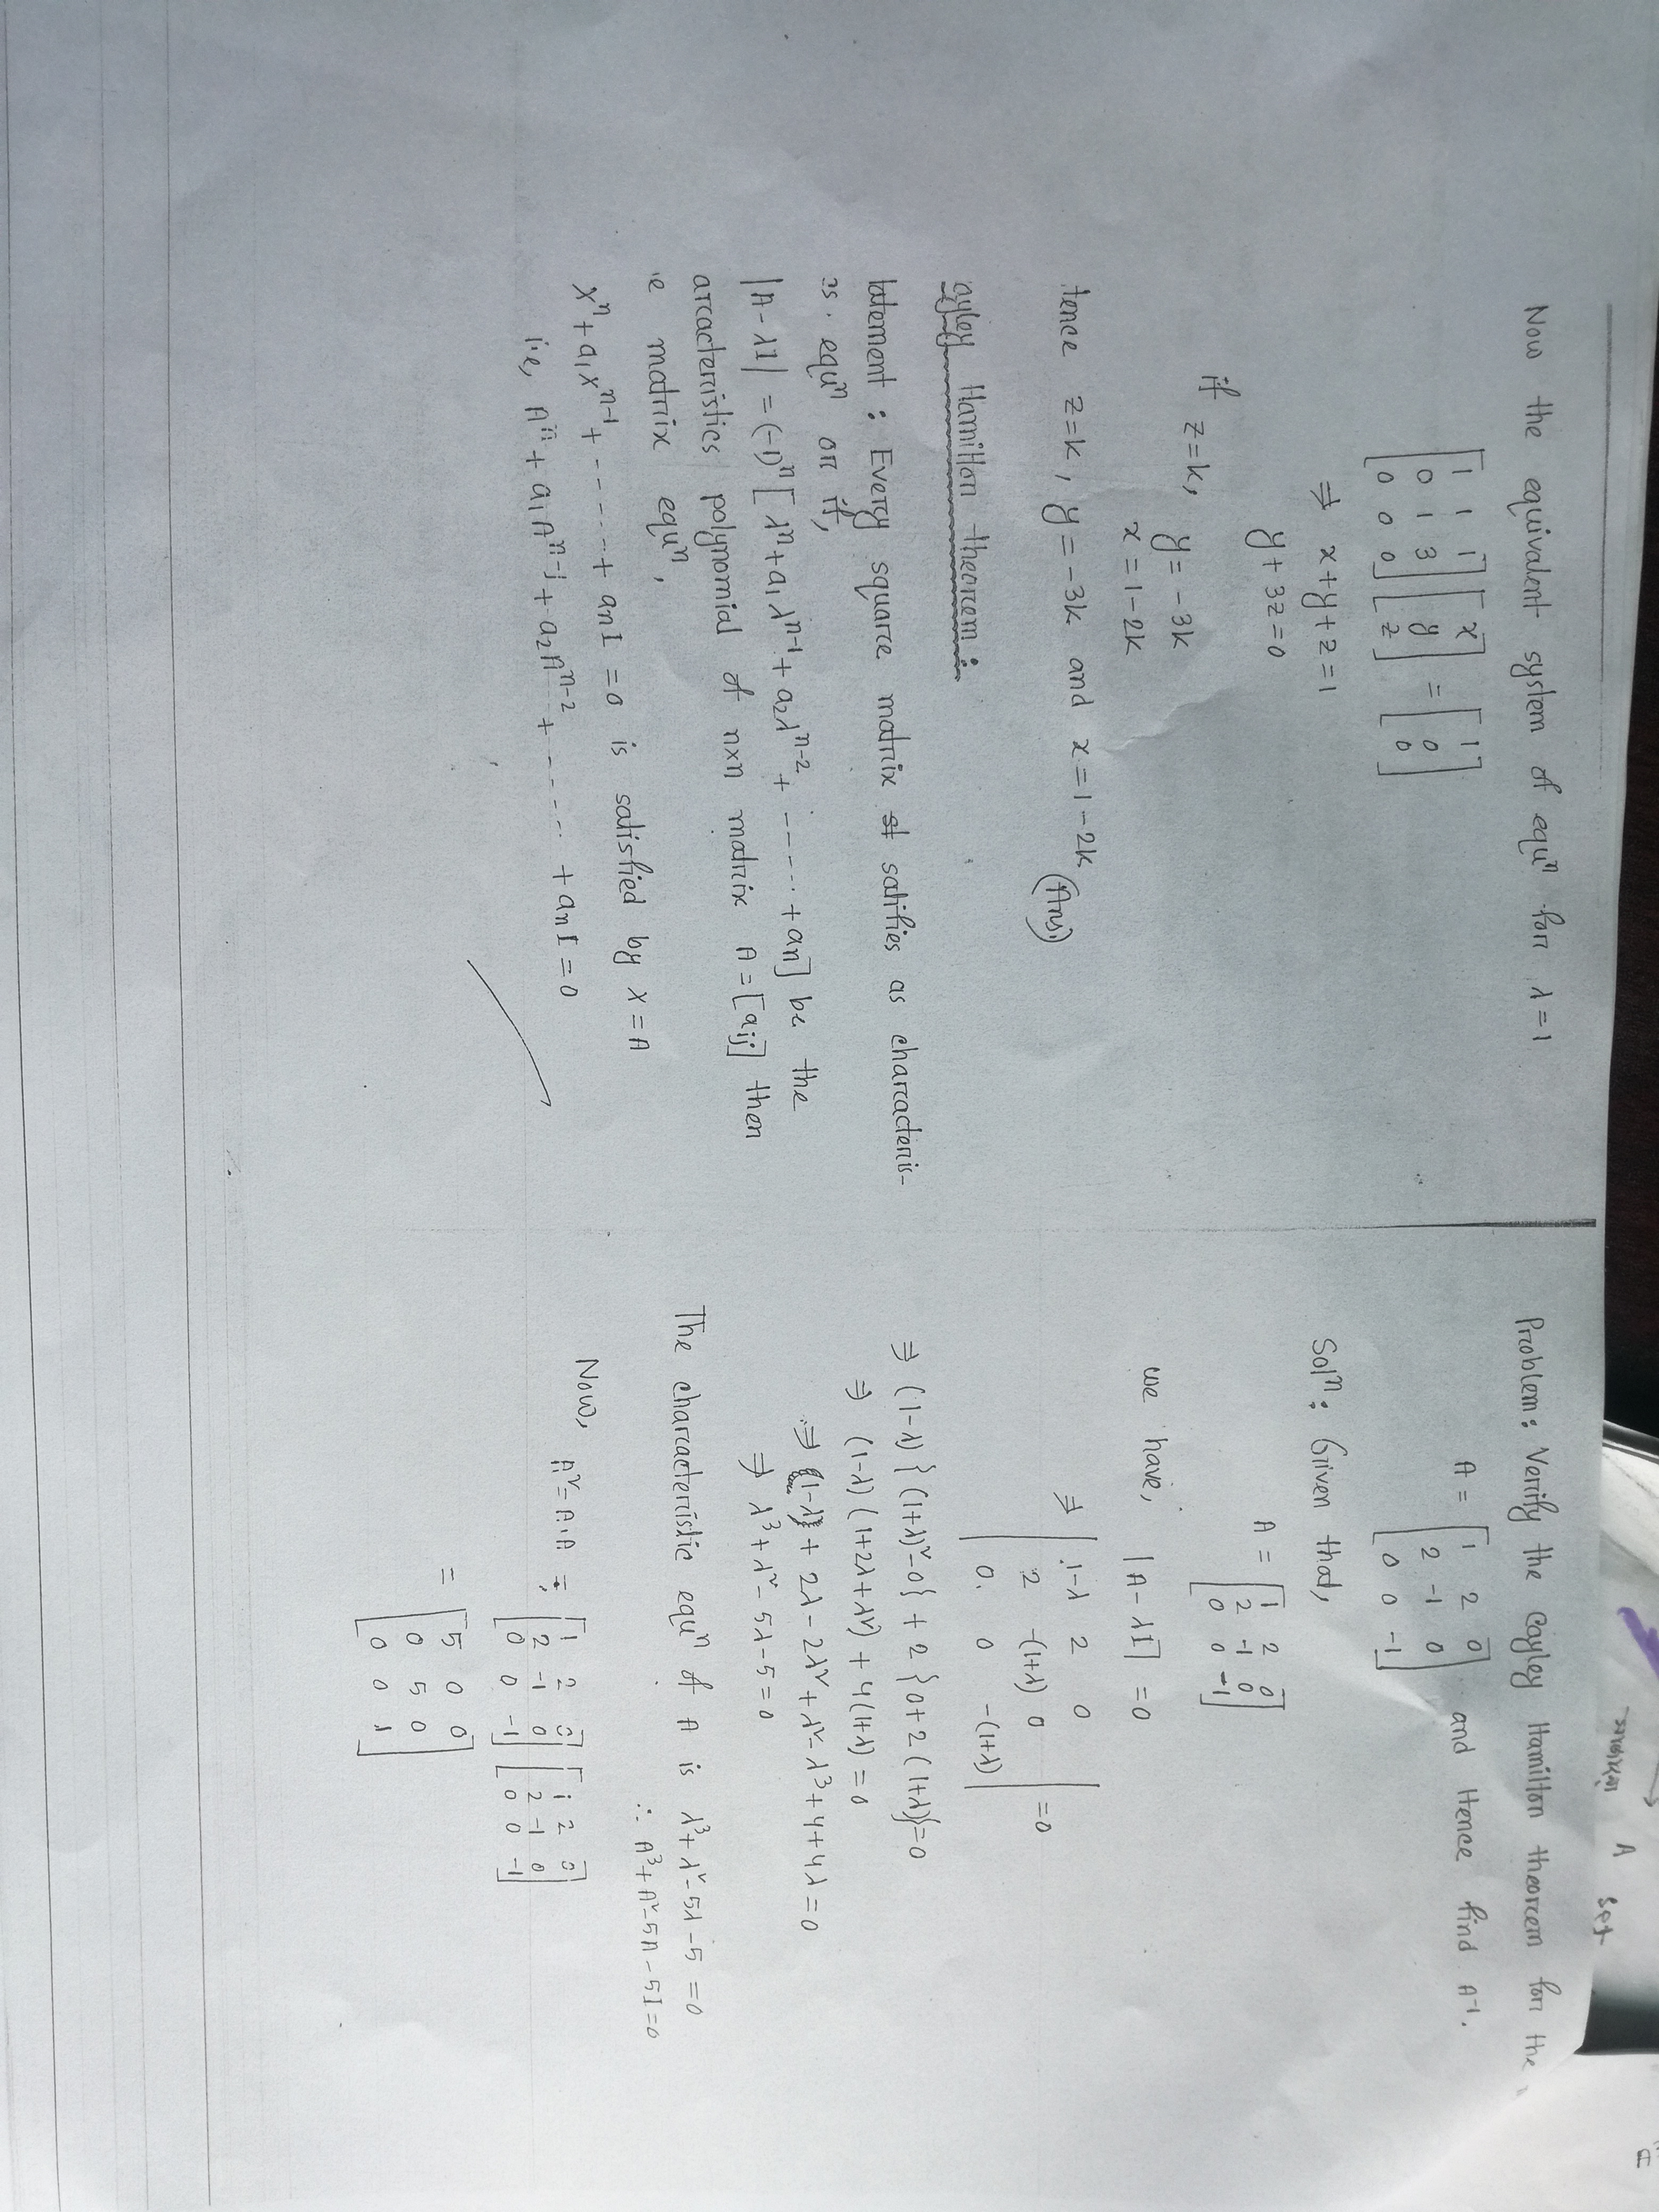 সাজেশন
A set
Now the equivalent system of equⁿ for λ=1
[1 1 1; 0 1 3; 0 0 0] [x; y; z] = [1; 0; 0]
⇒ x+y+z=1
y+3z=0
if z=k, y= -3k
x = 1-2k
tence z=k, y=-3k and x=1-2k (Ans.)
ayley Hamilton theorem:
tatement: Every square matrix satifies as characteris-
equⁿ or if,
|A-λI| = (-1)ⁿ [λⁿ+a₁λⁿ⁻¹+a₂λⁿ⁻²+ ------ +an] be the
aracteristics polynomial of n×n matrix A=[aij] then
e matrix equⁿ,
xⁿ+a₁xⁿ⁻¹+ ------+ anI =0 is satisfied by x=A
i.e, Aⁿ+a₁Aⁿ⁻¹+a₂Aⁿ⁻²+ ------ +anI=0
Problem: Verify the Cayley Hamilton theorem for the
A = [1 2 0; 2 -1 0; 0 0 -1] and Hence find A⁻¹.
Solⁿ: Given that,
A = [1 2 0; 2 -1 0; 0 0 -1]
we have, |A-λI| =0
⇒ |1-λ 2 0; 2 -(1+λ) 0; 0. 0 -(1+λ)| =0
⇒ (1-λ) {(1+λ)²-0} + 2 {0+2(1+λ)}=0
⇒ (1-λ) (1+2λ+λ²) + 4(1+λ) = 0
⇒ (1-λ) + 2λ-2λ²+λ²-λ³+4+4λ=0
⇒ λ³+λ²-5λ-5=0
The characteristic equⁿ of A is λ³+λ²-5λ-5 =0
∴ A³+A²-5A-5I=0
Now, A²=A.A = [1 2 0; 2 -1 0; 0 0 -1] [1 2 0; 2 -1 0; 0 0 -1]
= [5 0 0; 0 5 0; 0 0 1]